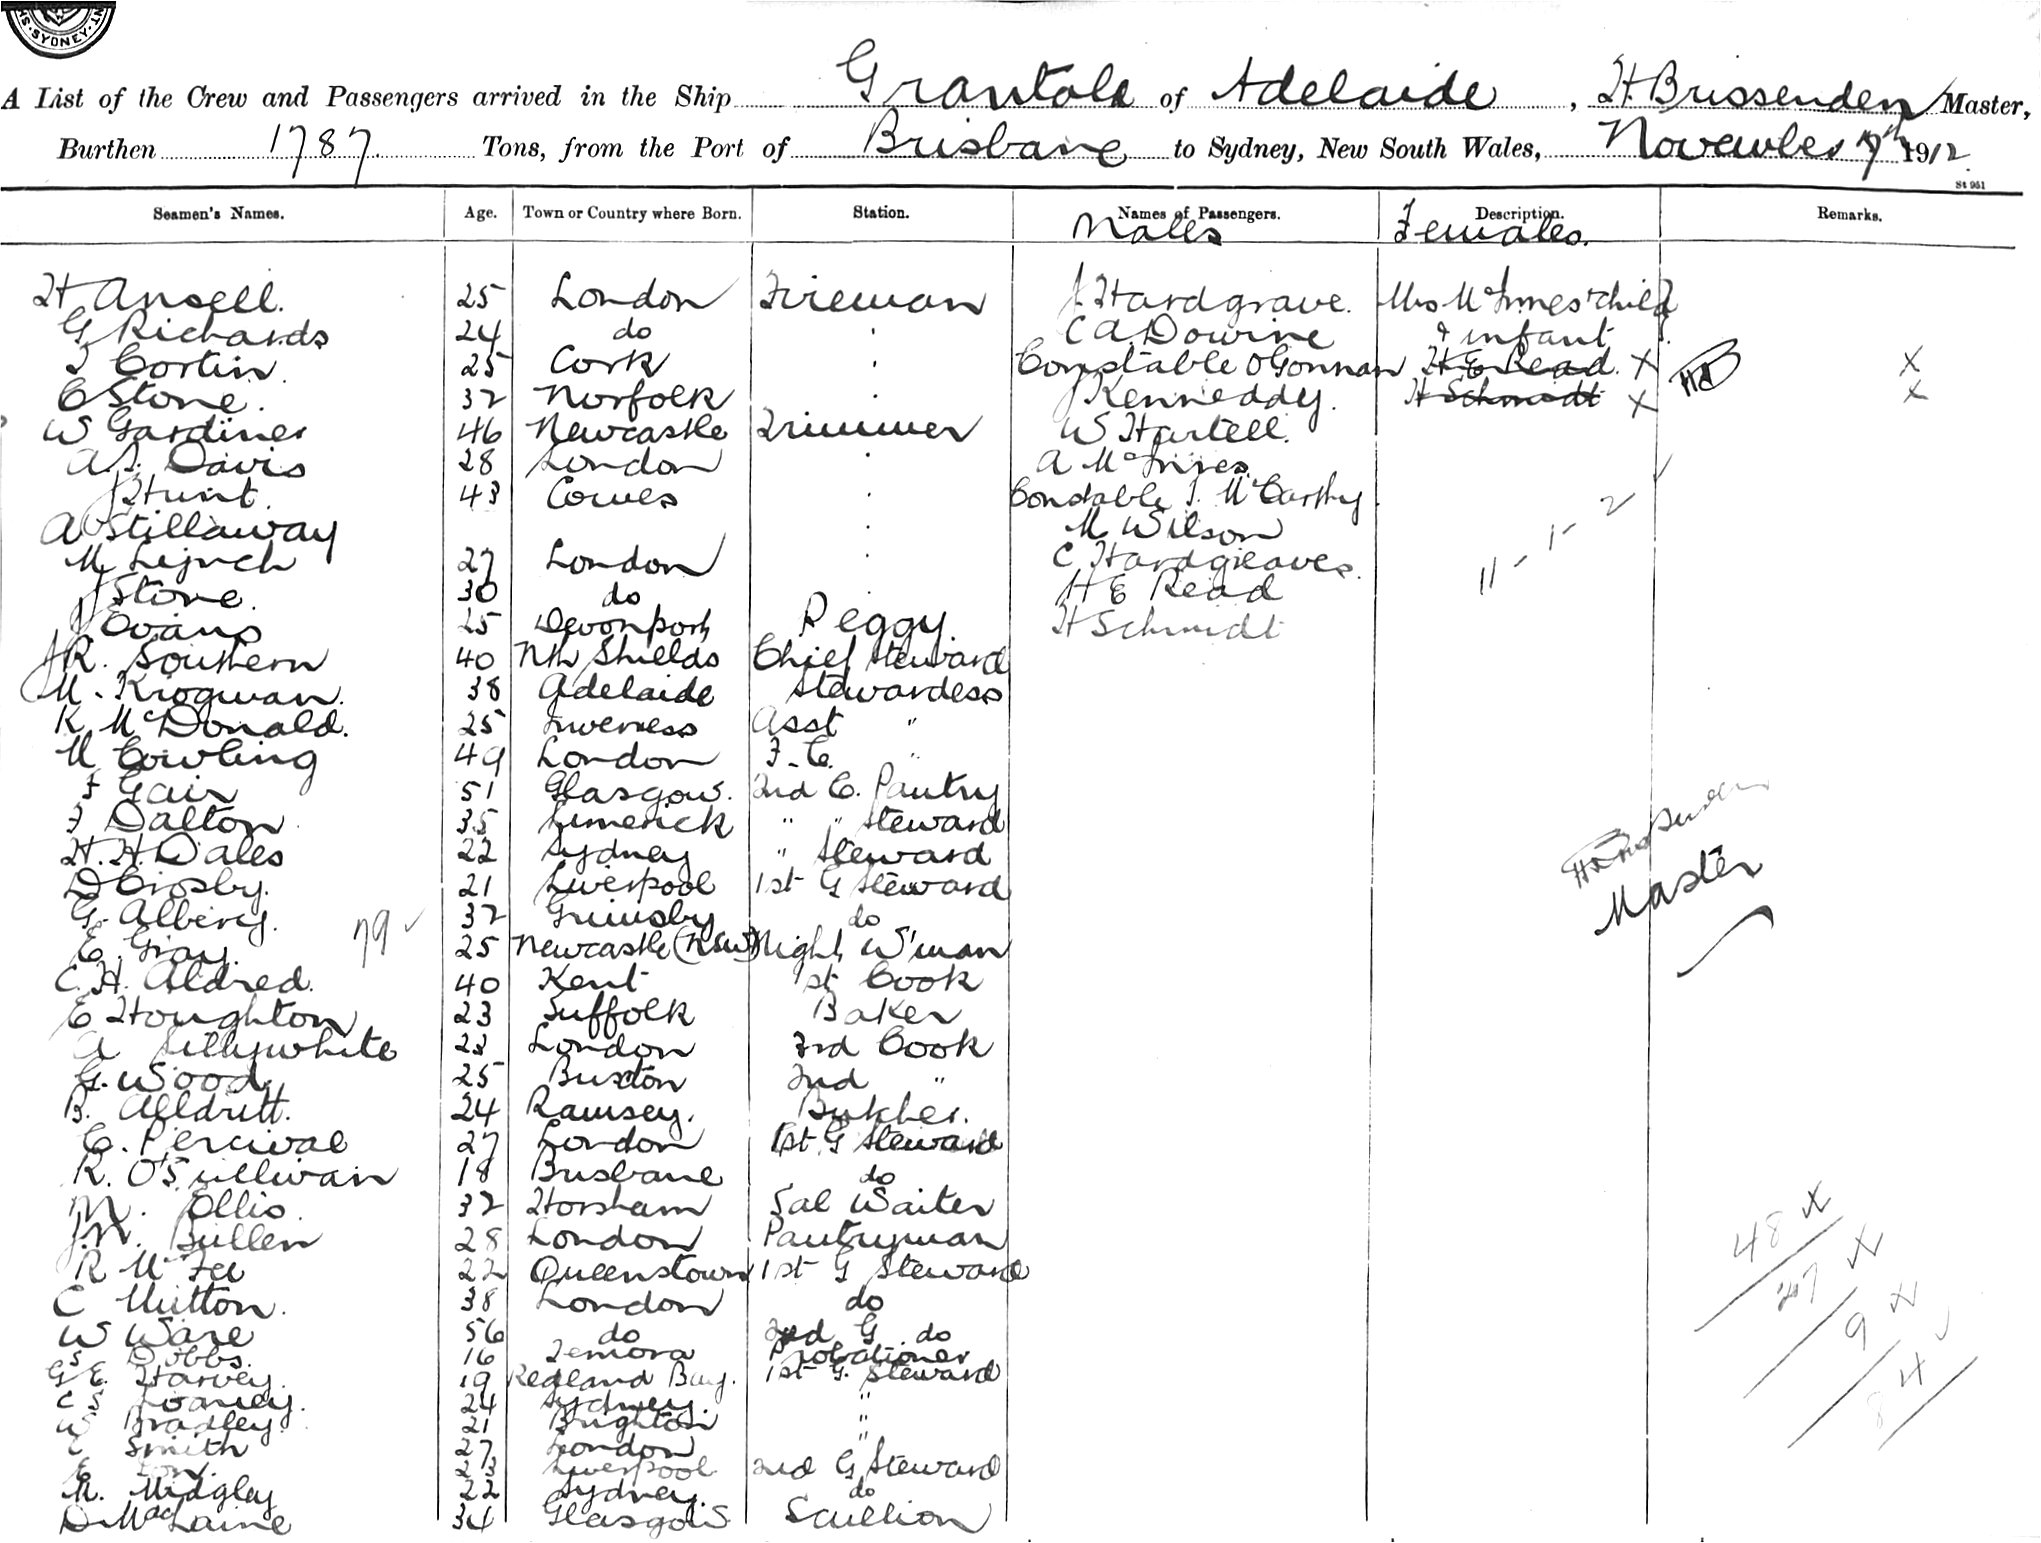 SYDNEY
A List of the Crew and Passengers arrived in the Ship Grantala of Adelaide, H. Brissenden Master,
Burthen 1787 Tons, from the Port of Brisbane to Sydney, New South Wales, November 1912
St 951
Seamen's Names. Age. Town or Country where Born. Station. Names of Passengers. Description. Remarks.
Males Females.
H Ansell. 25 London Fireman J Hardgrave. Mrs McInnes & child
G Richards 24 do " C A Downie & infant
T Cortin 25 Cork " Constable O'Gorman H E Read. X X
C Stone. 32 Norfolk " J Kenneddy. H Schmidt X X
W Gardiner 46 Newcastle Trimmer W Hartell.
A.J. Davis 28 London " A McInnes
J Hunt 43 Cowes " Constable J. McCarthy
A Stillaway " M Wilson 11 - 1 - 2
M Lynch 27 London " C Hardgreaves.
J Stone. 30 do " H E Read
J Evans 25 Devonport Peggy. H Schmidt
J R. Southern 40 Nth Shields Chief Steward
M. Krogman. 38 Adelaide Stewardess
K McDonald. 25 Inverness Asst "
M Cowling 49 London F. C. "
F Gair 51 Glasgow. 2nd C. Pantry
F Dalton 35 Limerick " " Steward
H. H. Dales 22 Sydney " Steward
D Crosby. 21 Liverpool 1st G Steward
Master
G. Albery. 32 Grimsby do
79
E. Gray. 25 Newcastle (NSW) Night W'man
C. H. Aldred. 40 Kent 1st Cook
E Houghton 23 Suffolk Baker
A Lillywhite 22 London 3rd Cook
G. Wood 25 Buxton 2nd "
B. Alldritt. 24 Ramsey. Butcher.
C. Percival 27 London 1st G Steward
R. O'Sullivan 18 Brisbane do
M. Ellis 32 Horsham Sal Waiter
J.W. Bullen 28 London Pantryman
48 X
R McFee 22 Queenstown 1st G Steward
C Mutton. 38 London do
9 X
W Ware 56 do 2nd G do
S Dobbs. 16 Temora Probationer
G E. Harvey. 19 Redland Bay. 1st G. Steward
84
C S 24 Sydney. "
W Bradley 21 Brighton "
C Smith 27 London "
E 23 Liverpool 2nd G Steward
R. Midgley 22 Sydney. do
D. MacLaine 34 Glasgow Scullion